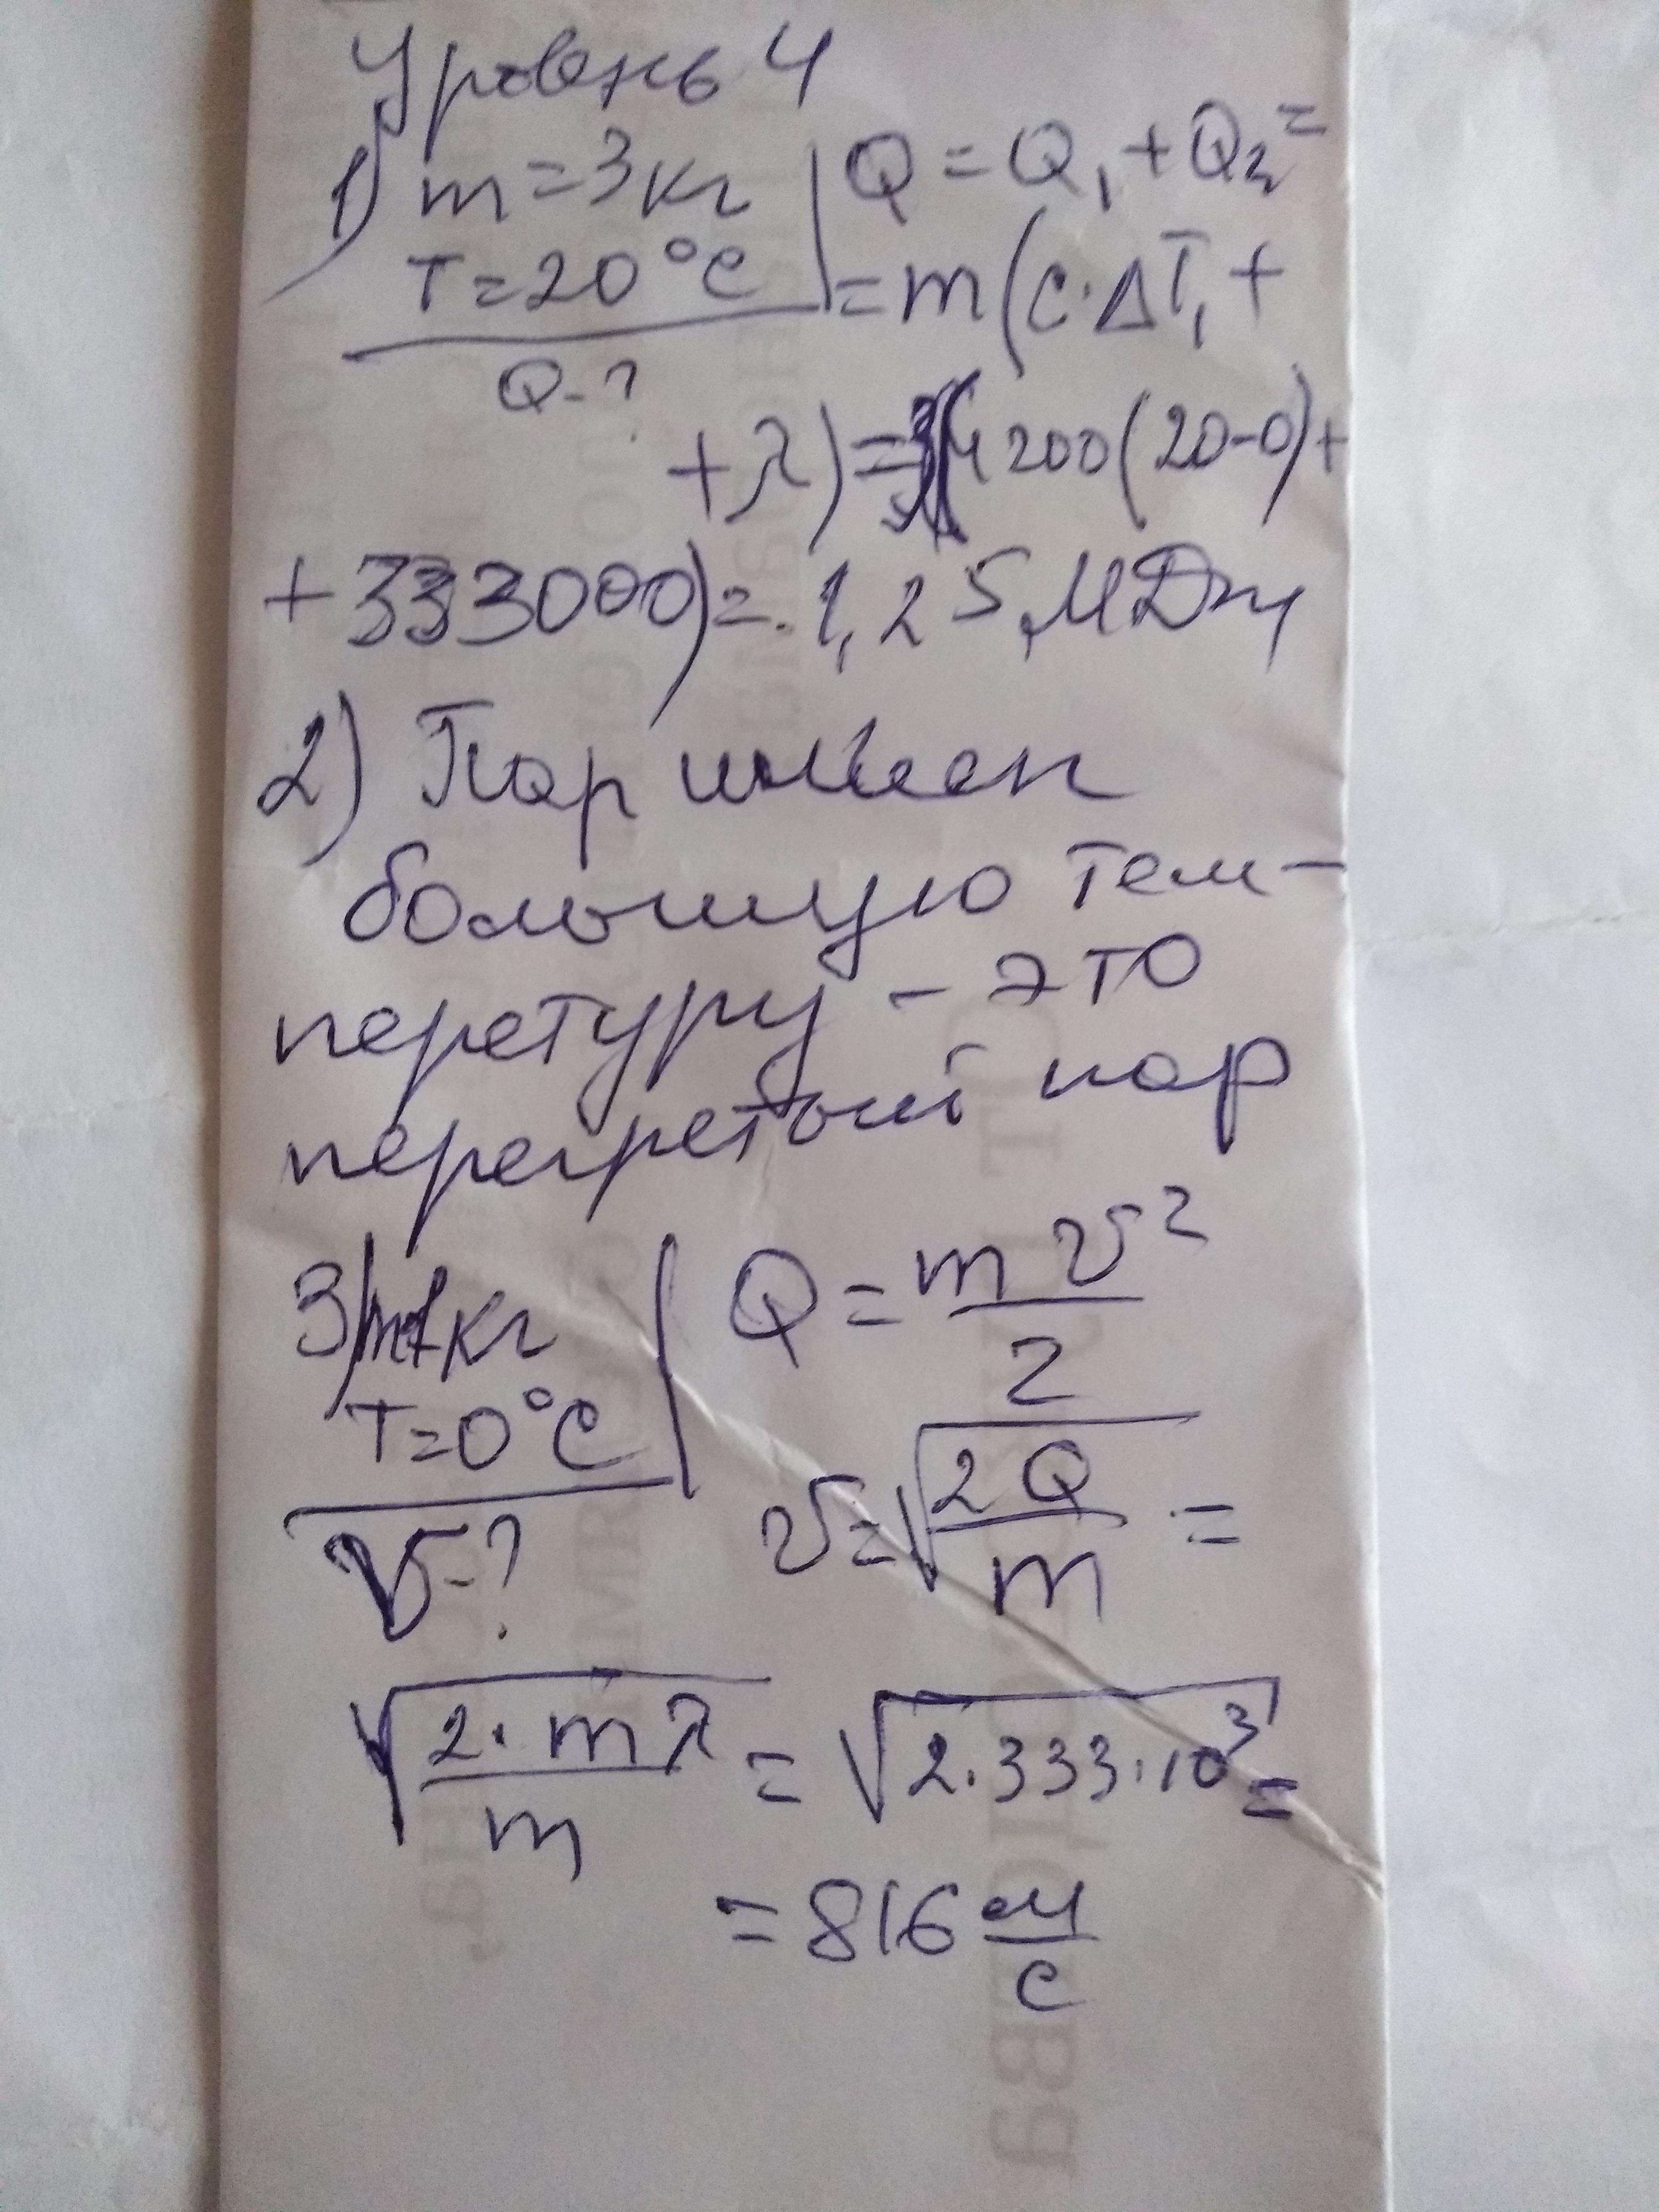 Уровень 4
1) m = 3 кг | Q = Q₁ + Q₂ =
T = 20 °C | = m (c · ΔT₁ +
Q - ?
+ λ) = 3(4200(20-0)+
+ 333000) = 1,25 МДж
2) Пар имеет
большую тем-
перетуру - это
перегретый пар
3) m=1 кг | Q = mv²/2
T = 0 °C
v - ? v = √(2Q/m) =
√(2·mλ/m) = √(2·333·10³) =
= 816 м/с